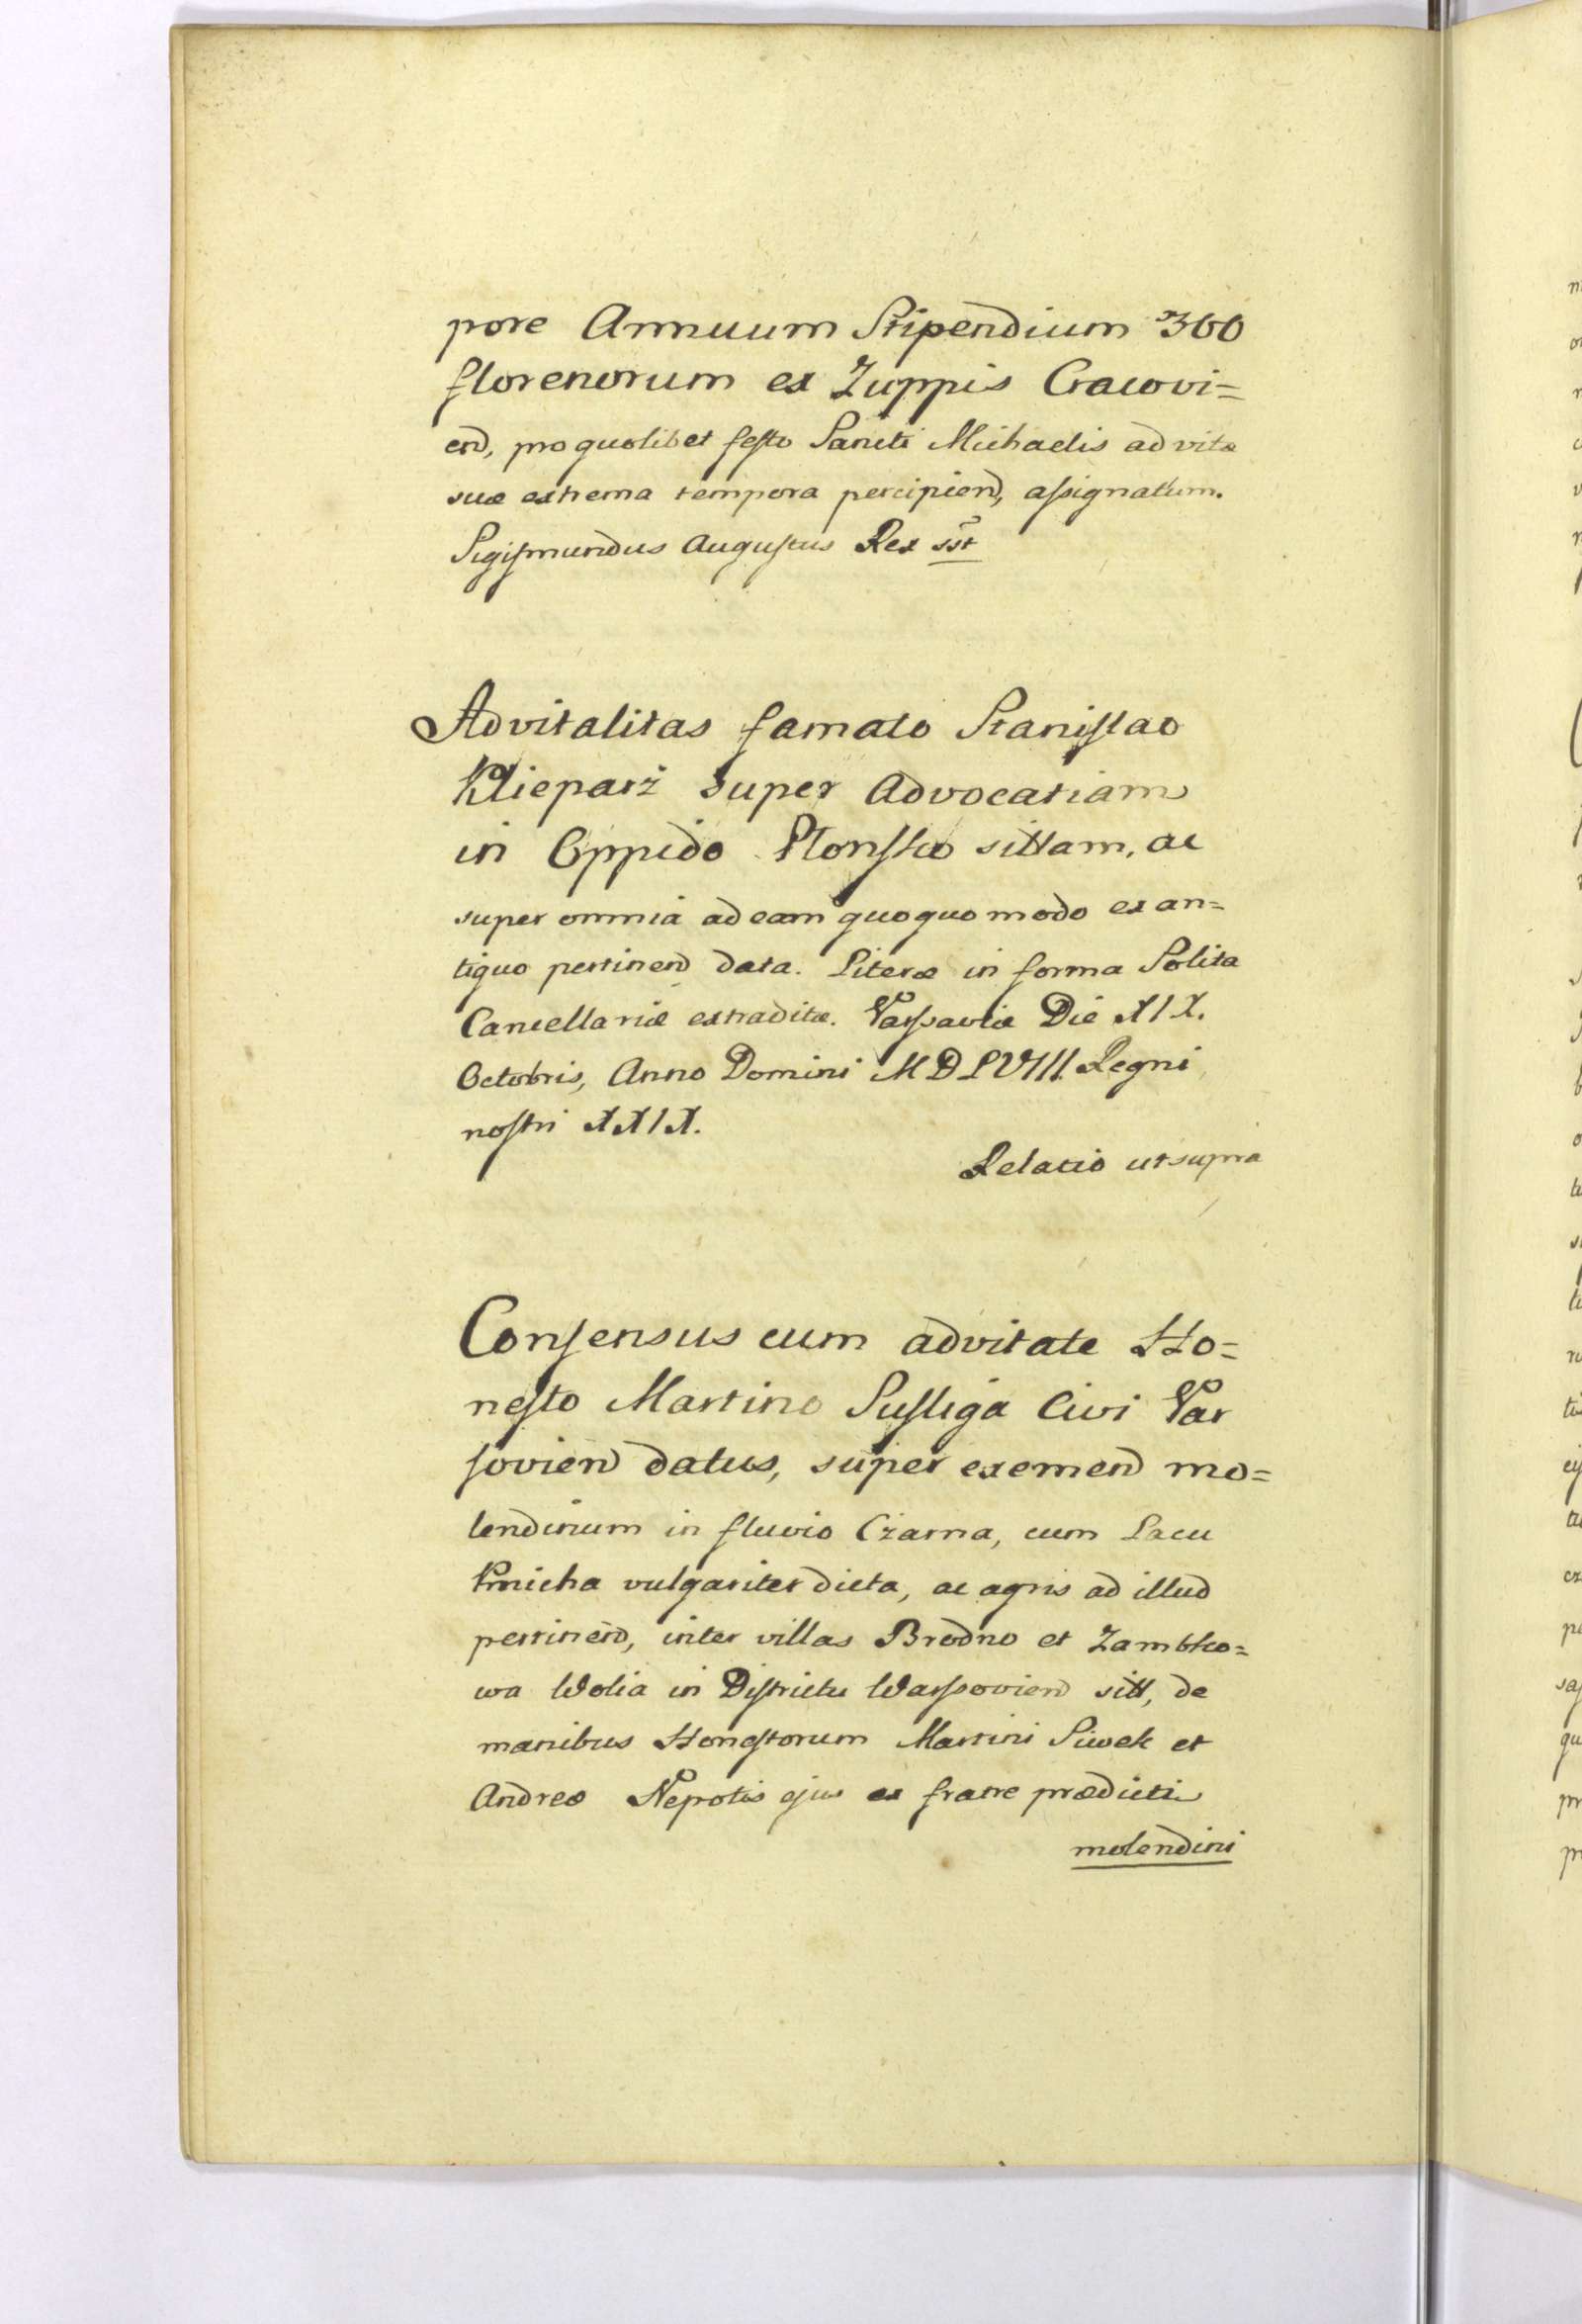 pore Annuum Stipendium 300
florenorum ex Zuppis Cracovi=
end, pro quolibet festo Sancti Michaelis ad vitæ
suæ extrema tempora percipiend, assignatum.
Sigismundus Augustus Rex sst
Advitalitas famato Stanislao
Klieparz super Advocatiam
in Oppido Plonsko sittam, ac
super omnia ad eam quoquo modo ex an=
tiquo pertinend data. Literæ in forma Solita
Cancellariæ extraditæ. Varsaviæ Die XIX.
Octobris, Anno Domini MDLVIII. Regni
nostri XXIX.
Relatio ut supra
Consensus cum advitate Ho=
nesto Martino Susliga Civi Var
soviend datus, super exemend mo=
lendinum in fluvio Czarna, cum Lacu
Kmicha vulgariter dicta, ac agris ad illud
pertinend, inter villas Brodno et Zambko=
wa Wolia in Districtu Warsoviend sitt, de
manibus Honestorum Martini Siwek et
Andreæ Nepotis ejus ex fratre prædicti
molendini